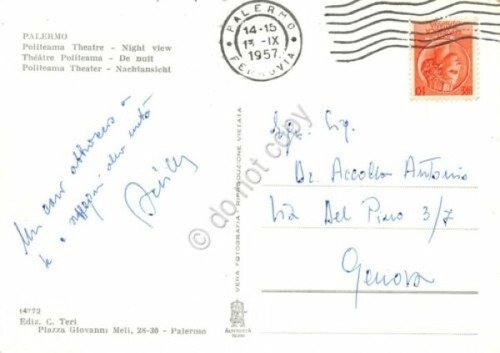 PALERMO
Politeama Theatre - Night view
Théâtre Politeama - De nuit
Politeama Theater - Nachtansicht
PALERMO
14-15
13 -IX
1957
FERROVIA
Un caro abbraccio a
te e
Achille
VERA FOTOGRAFIA - RIPRODUZIONE VIETATA
© do not copy
Sig.
Dr. Accolla Antonio
Via Del Piano 3/7
Genova
14772
Ediz. C. Teri
Piazza Giovanni Meli, 28-30 - Palermo